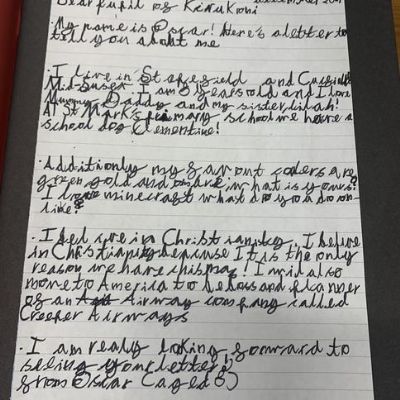 Dear Pupil of Kirukoni
· My name is Oscar! Here's a letter to
tell you about me
· I live in Staplefield and
Mid Sussex I am 8 years old and I love
Mummy Daddy and my sister
At St Mark's primary school we have a
school dog Clementine!
· Additionly my favout coders are
green gold and what is yours?
I minecraft what do you do on-
line?
· I beleive in Christianity. I beleive
in Christianity because It is the only
reason we have chismas! I will also
move to America to be boss and planner
of an Airway company called
Creeper Airways
· I am really looking forward to
seeing your letter!
from Oscar (aged 8)